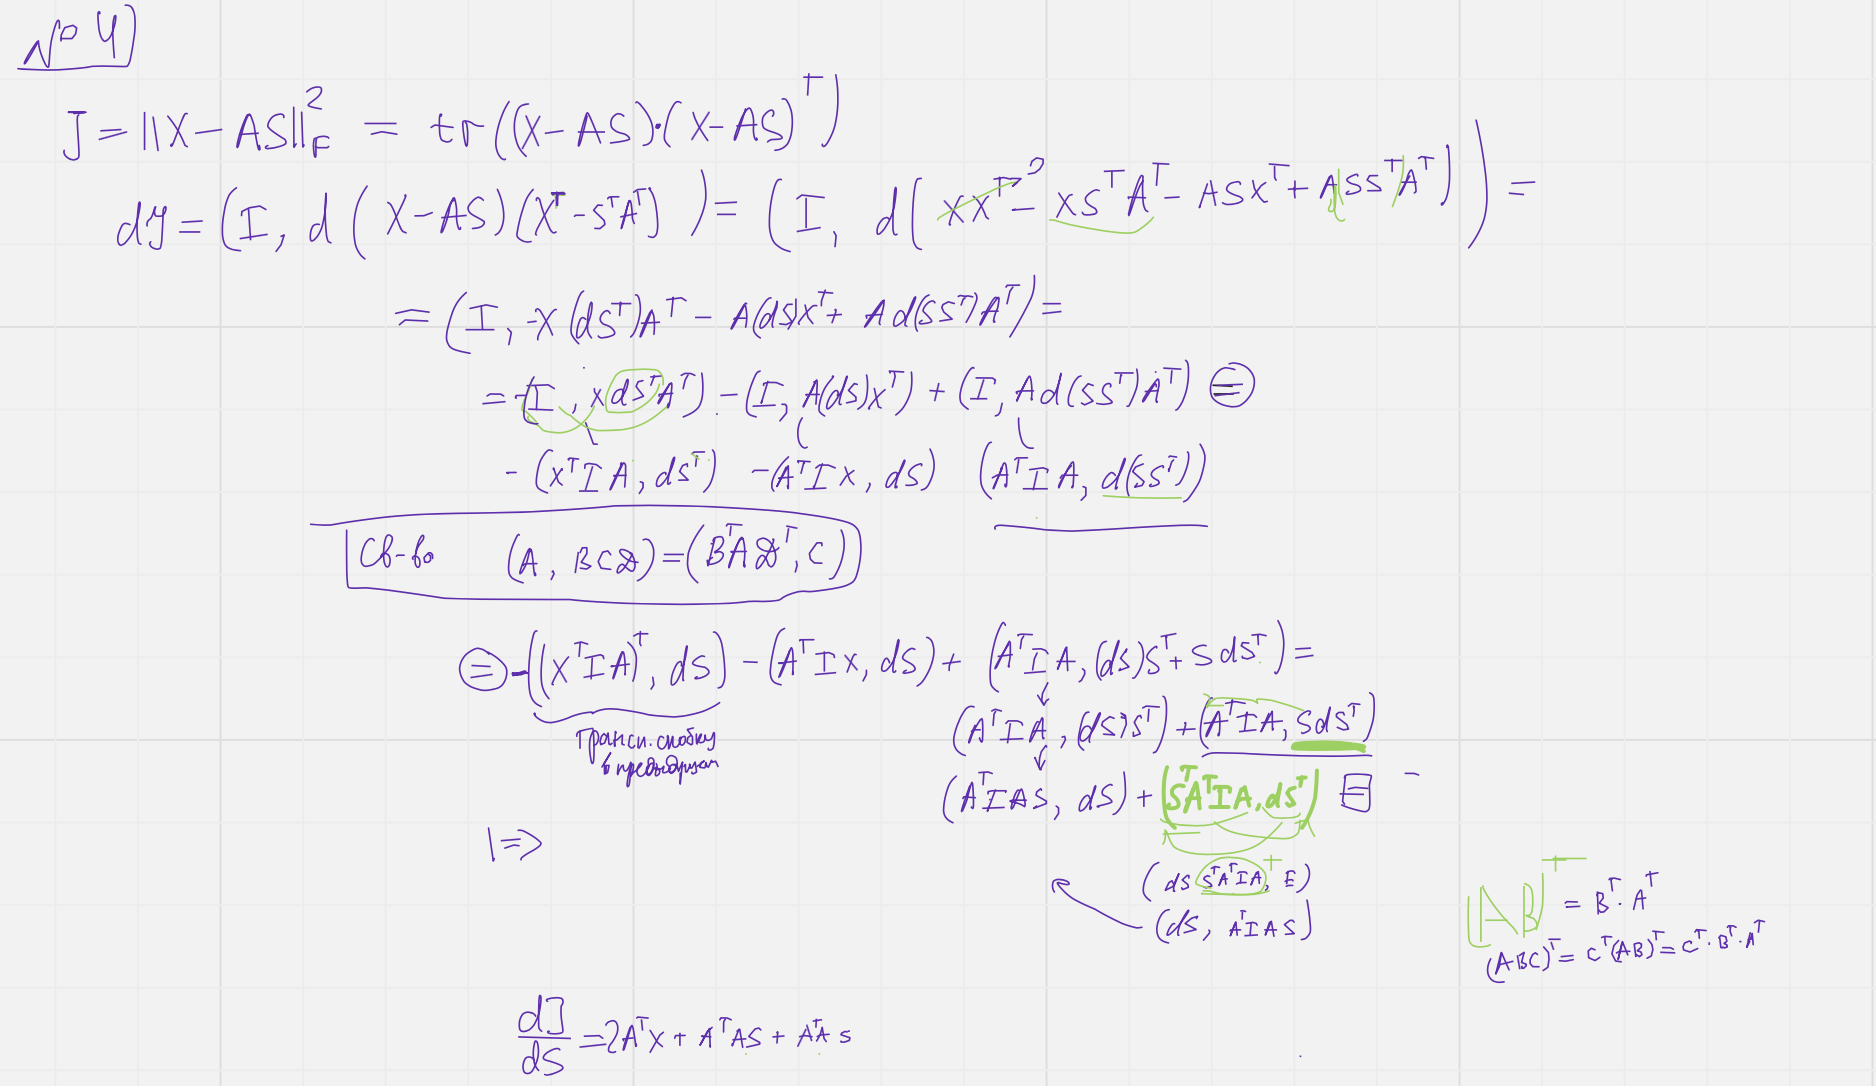 № 4
J = ||X - AS||²_F = tr((X - AS)·(X - AS)^T)
dJ = (I, d(X - AS)(X^T - S^T A^T)) = (I, d(XX^T - XS^T A^T - ASX^T + ASS^T A^T)) =
= (I, -X(dS^T)A^T - A(dS)X^T + A d(SS^T)A^T) =
= -(I, X dS^T A^T) - (I, A(dS)X^T) + (I, A d(SS^T)A^T) =
- (X^T I A, dS^T) - (A^T I X, dS) (A^T I A, d(SS^T))
Св-во (A, BCD) = (B^T A D^T, C)
= -((X^T I A)^T, dS) - (A^T I X, dS) + (A^T I A, (dS)S^T + S dS^T) =
(A^T I A, (dS)S^T) + (A^T I A, S dS^T)
Трансп. скобку
в предыдущем
(A^T I A S, dS) + (S^T A^T I A, dS^T) = -
|⇒
(dS S^T A^T I A^T, E)
(dS, A^T I A S)
(AB)^T = B^T · A^T
(ABC)^T = C^T (AB)^T = C^T · B^T · A^T
dJ/dS = 2A^T X + A^T AS + A^T A S